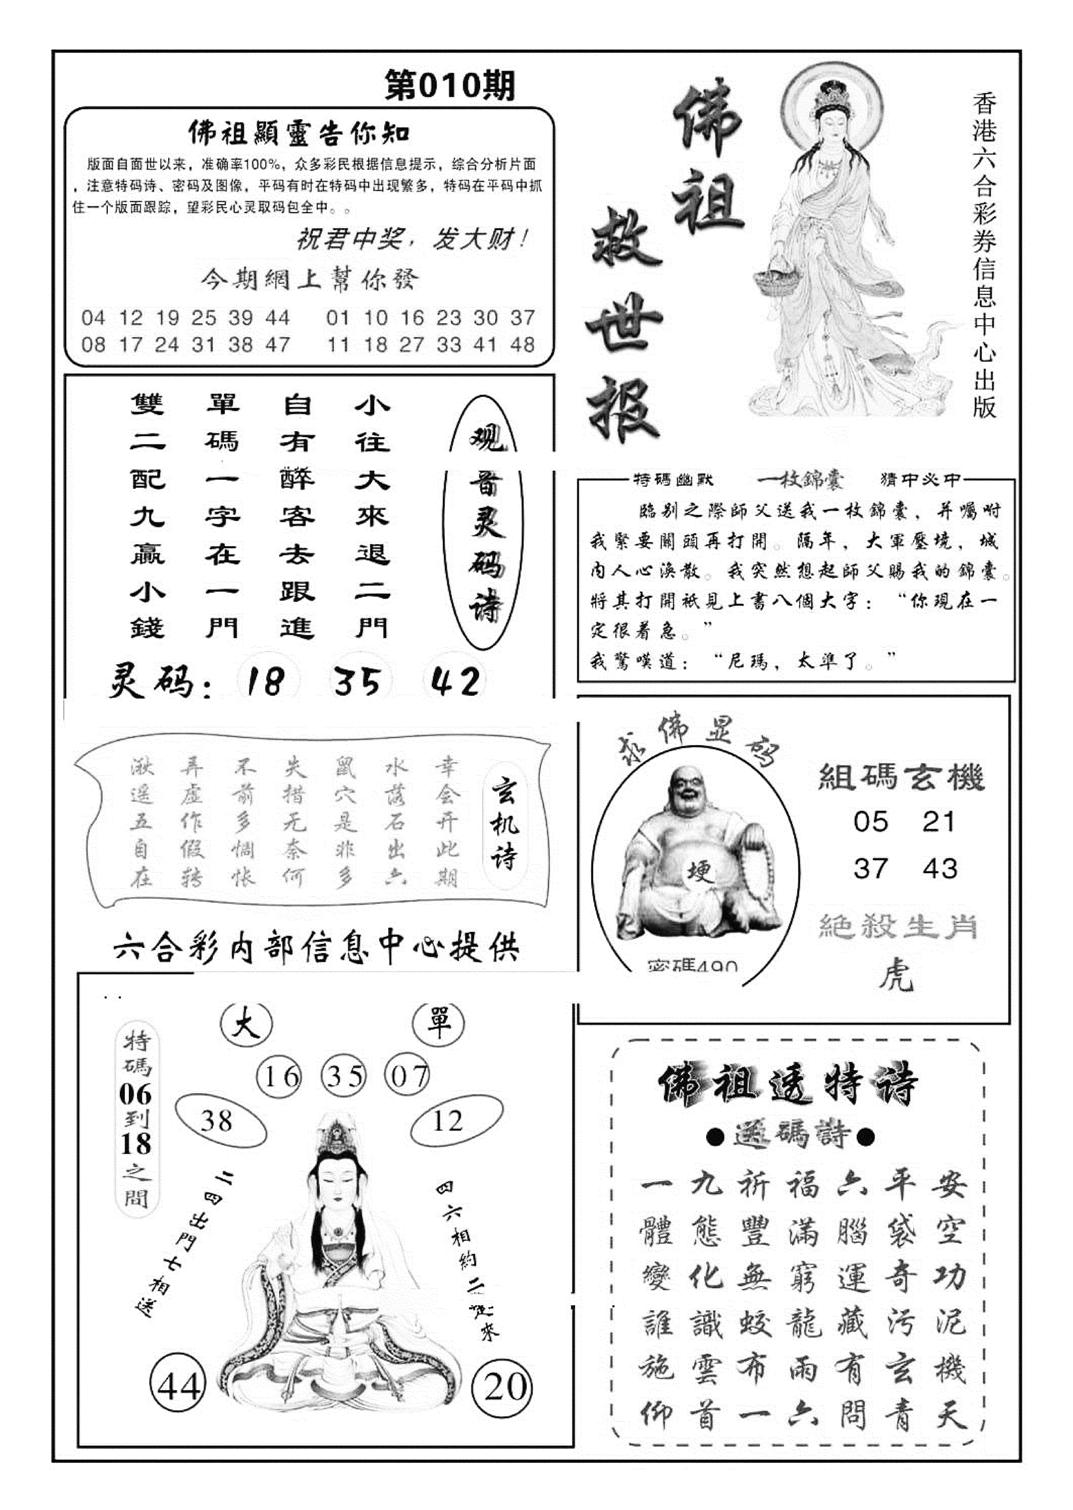 第010期
佛祖顯靈告你知
版面自面世以来，准确率100%，众多彩民根据信息提示，综合分析片面
，注意特码诗、密码及图像，平码有时在特码中出现繁多，特码在平码中抓
住一个版面跟踪，望彩民心灵取码包全中。。
祝君中奖，发大财！
今期網上幫你發
04 12 19 25 39 44 01 10 16 23 30 37
08 17 24 31 38 47 11 18 27 33 41 48
佛祖
救世报
香港六合彩券信息中心出版
观音灵码诗
小往大來退二門
自有醉客去跟進
單碼一字在一門
雙二配九贏小錢
灵码：18 35 42
特碼幽默 一枚錦囊 猜中必中
臨别之際師父送我一枚錦囊，并囑咐
我緊要關頭再打開。隔年，大軍壓境，城
内人心涣散。我突然想起師父賜我的錦囊。
將其打開衹見上書八個大字：“你現在一
定很着急。”
我驚嘆道：“尼瑪，太準了。”
玄机诗
幸会开此期
水落石出六
鼠穴是非多
失措无奈何
不前多惆怅
弄虚作假转
湫遥五自在
求佛显码
埂
密碼490
組碼玄機
05 21
37 43
絕殺生肖
虎
六合彩内部信息中心提供
大 單
特碼06到18之間
16 35 07
38 12
二四出門七相送
四六相約二起來
44 20
佛祖透特诗
●送碼詩●
一九祈福六平安
體態豐滿腦袋空
變化無窮運奇功
誰識蛟龍藏污泥
施雲布雨有玄機
仰首一六問青天